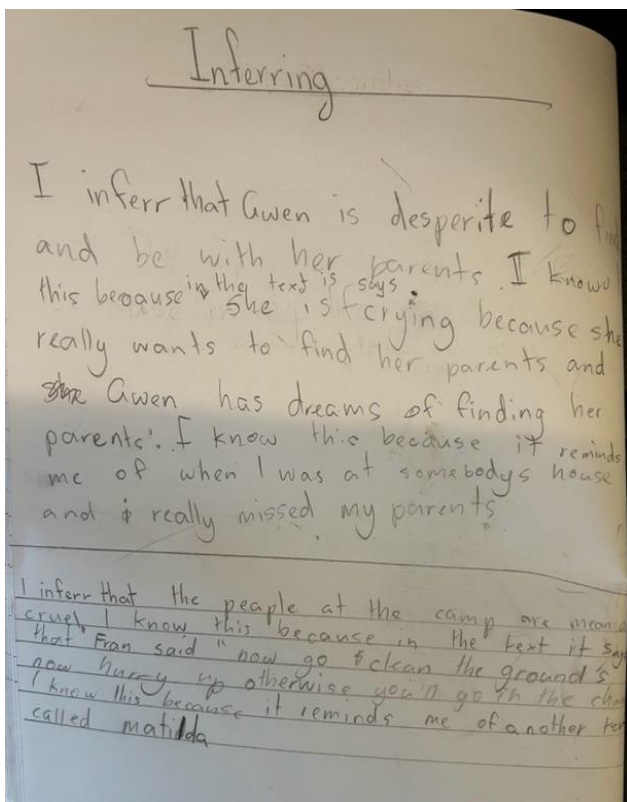 Inferring
I inferr that Gwen is desperite to
and be with her parents. I know
this beacause in the text is says.
she is crying because she
really wants to find her parents and
Gwen has dreams of finding her
parents. I know this because it reminds
me of when I was at somebodys house
and i really missed my parents
I inferr that the peaple at the camp are mean
cruel, I know this because in the text it says
that Fran said "now go clean the ground's
now hurry up otherwise you'll go in the
I know this because it reminds me of another
called matilda